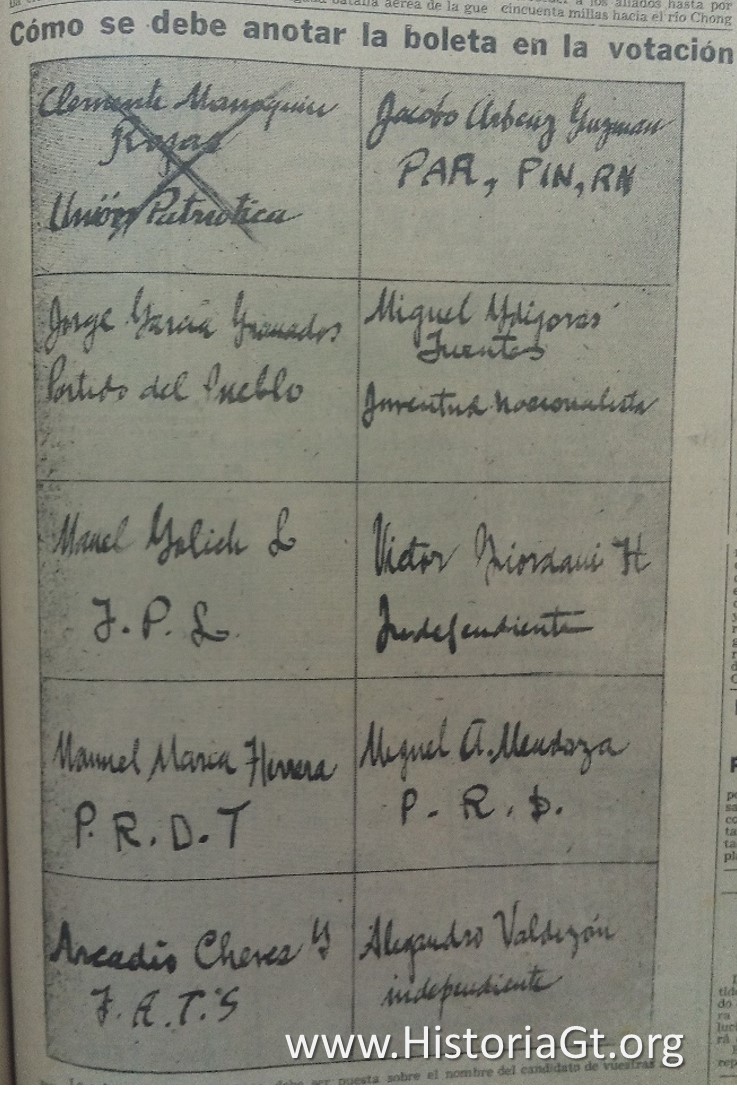 batalla aérea de la gue
a los aliados hasta por
cincuenta millas hacia el río Chong
Cómo se debe anotar la boleta en la votación
Clemente Marroquín
Rojas
Unión Patriotica
Jacobo Arbenz Guzman
PAR, PIN, RN
Jorge García Granados
Partido del Pueblo
Miguel Ydigoras
Fuentes
Juventud nacionalista
Manuel Galich L
F. P. L
Victor Giordani H
Independiente
Manuel María Herrera
P. R. D. T
Miguel A. Mendoza
P. R. D.
Arcadio Chevez y
F. A. T. S
Alejandro Valdizón
independiente
www.HistoriaGt.org
debe ser puesta sobre el nombre del candidato de vuestras